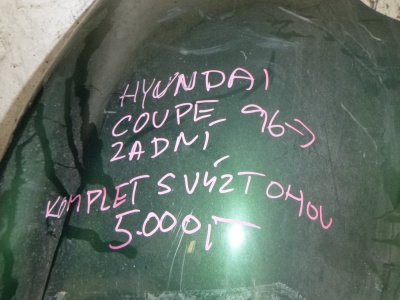 HYUNDAI
COUPE 96->
ZADNÍ
KOMPLET S VÝZTOHOU
5.000,-